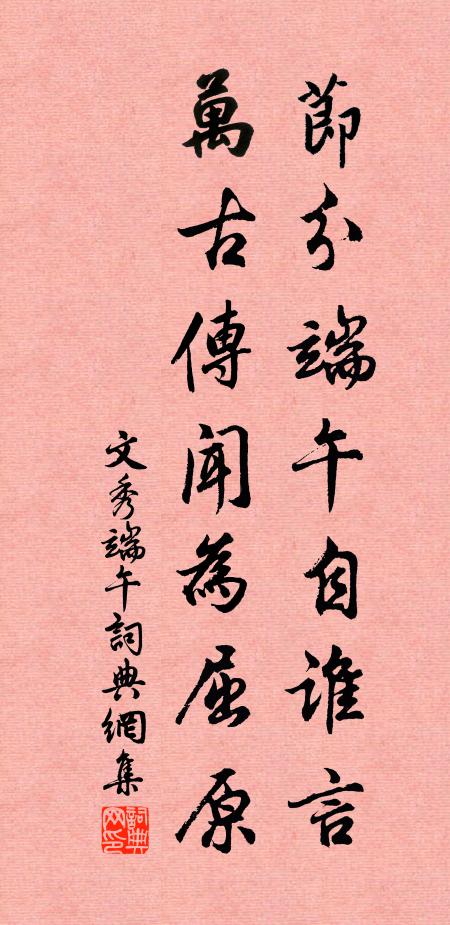 節分端午自誰言
萬古傳聞為屈原
文秀端午詞典網集
詞典網印